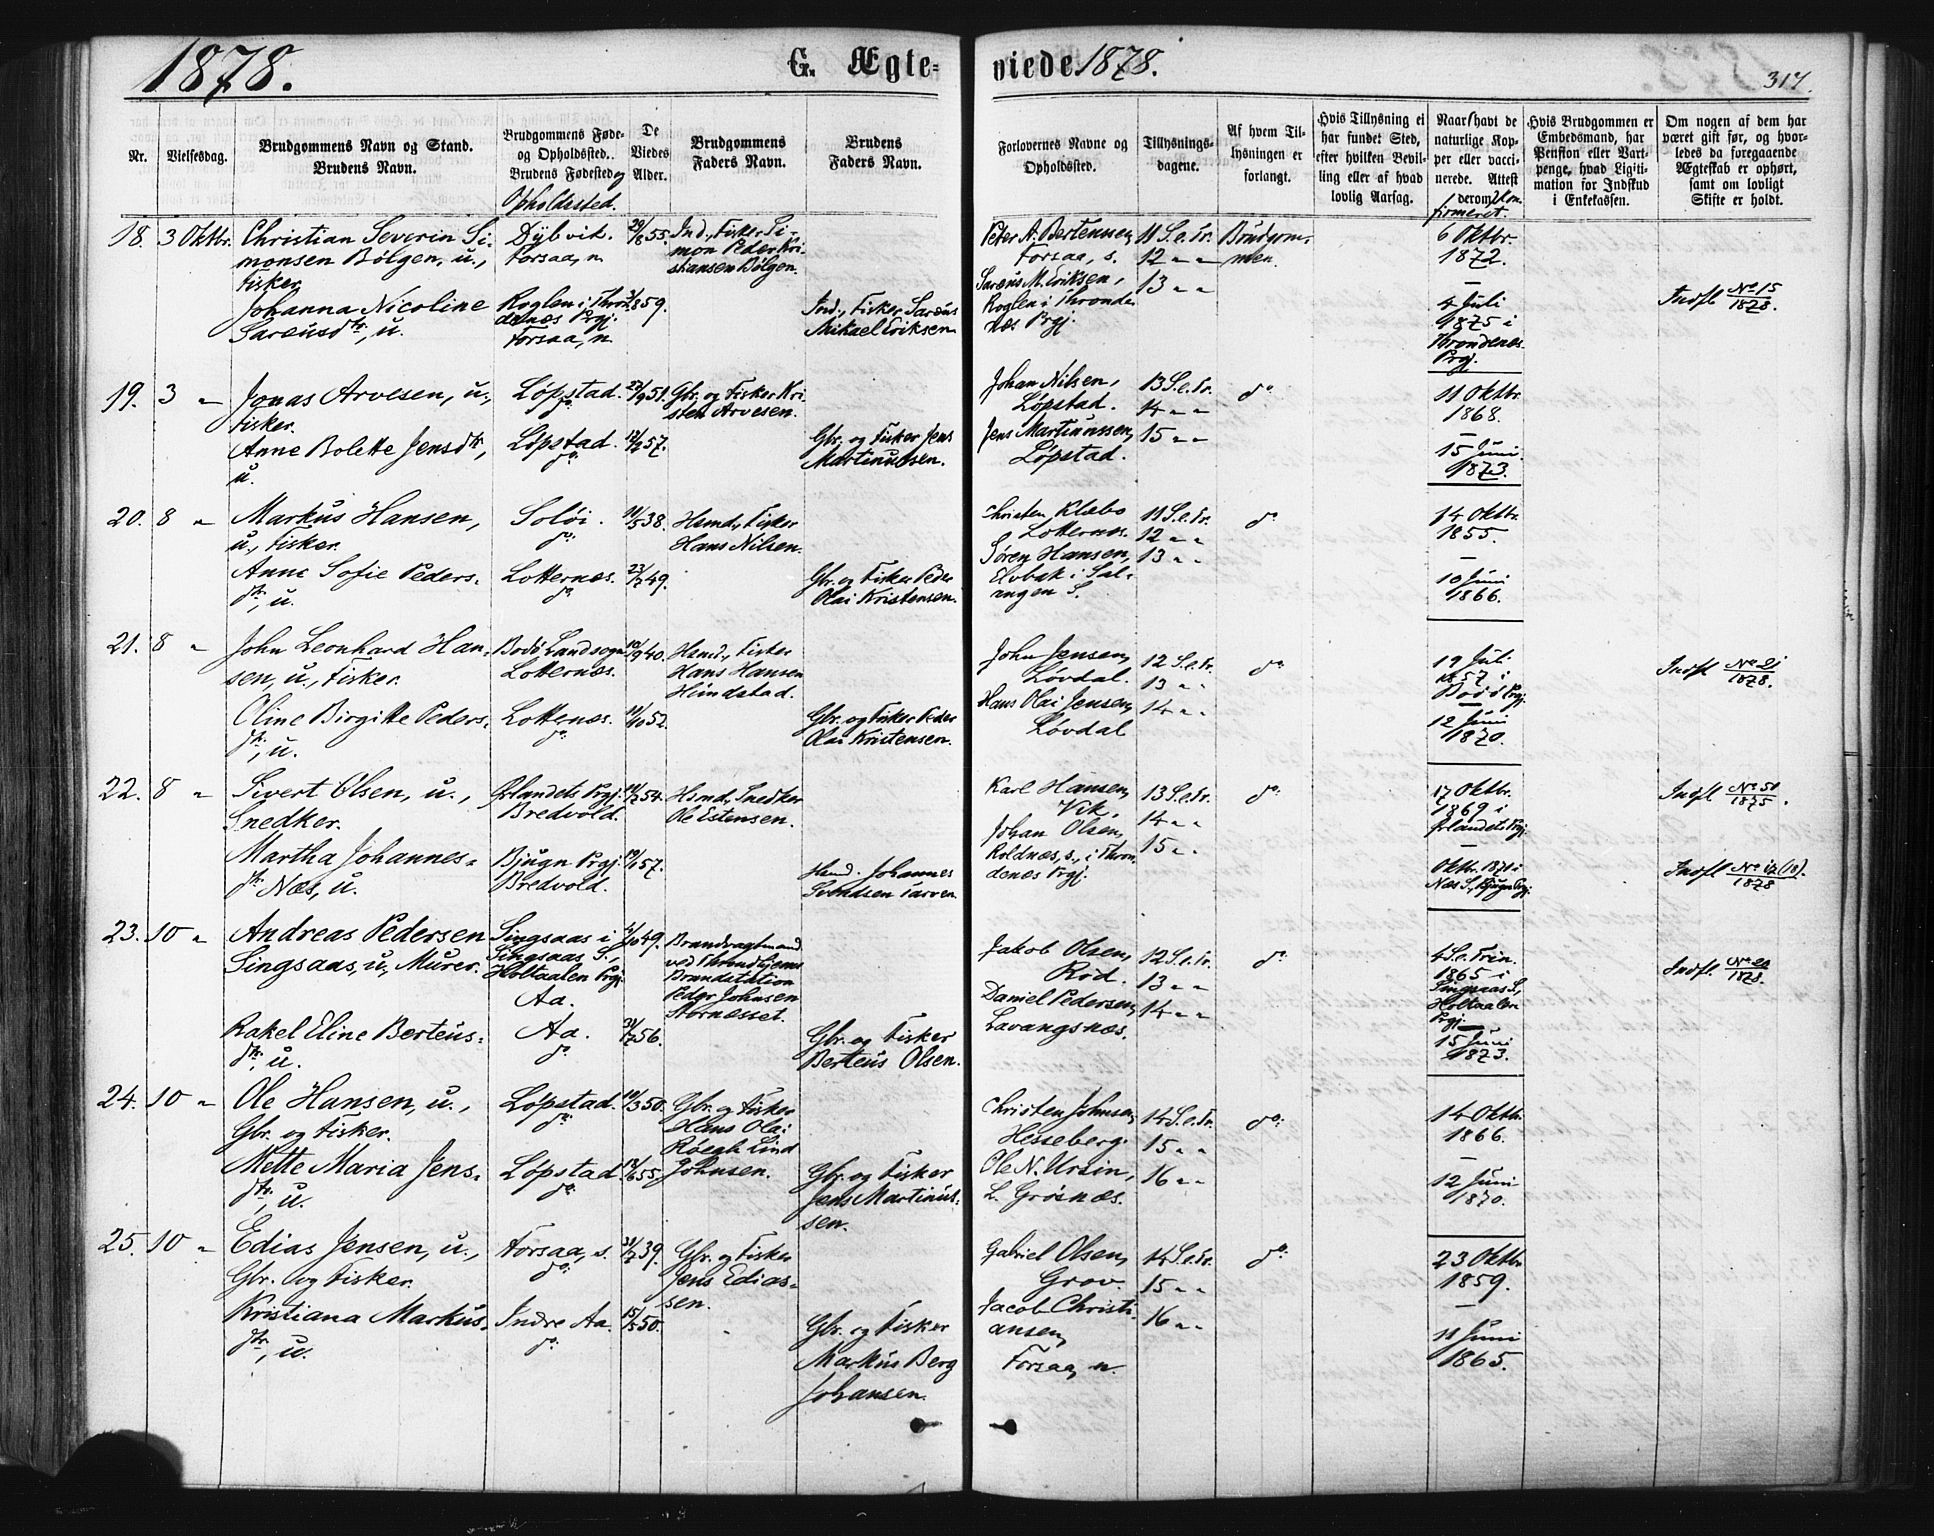 1878.
G. Ægte-
viede 1878.
317.
Nr.
Vielsesdag.
Brudgommens Navn og Stand.
Brudens Navn.
Brudgommens Føde-
og Opholdssted.
Brudens Fødested og
Opholdssted.
De
Viedes
Alder.
Brudgommens
Faders Navn.
Brudens
Faders Navn.
Forlovernes Navne og
Opholdssted.
Tillysnings-
dagene.
Af hvem Til-
lysningen er
forlangt.
Hvis Tillysning ei
har fundet Sted,
efter hvilken Bevil-
ling eller af hvad
lovlig Aarsag.
Naar havt de
naturlige Kop-
per eller vacci-
nerede. Attest
derom. Kon-
firmeret.
Hvis Brudgommen er
Embedsmand, har
Pension eller Vart-
penge, hvad Ligiti-
mation for Indskud
i Enkekassen.
Om nogen af dem har
været gift før, og hvor-
ledes da foregaaende
Ægteskab er ophørt,
samt om lovligt
Skifte er holdt.
18. 3 Oktbr.
Christian Severin Si-
monsen Bölgen, u.,
Fisker.
Johanna Nicoline
Sareusdtr, u.
Dybvik.
Forsaa, n.
Roglen i Thron-
denæs Prgj.
Forsaa, n.
29/8 55.
3/1 859.
Ind., Fisker Si-
mon Peder Kri-
stiansen Bölgen.
Ind., Fisker Sareus
Mikael Eriksen
Peter A. Bertensen,
Forsaa, s.
Sareus M. Eriksen,
Roglen i Thronde-
næs Prgj.
11 S. e. Tr.
12 " "
13 " "
Brudgom-
men.
6 Oktbr.
1872.
4 Juli
1875 i
Throndenæs
Prgj.
Indfl. No 15/1878.
19. 3 "
Jonas Arvesen, u.,
Fisker.
Anne Bolette Jensdtr,
u.
Løpstad.
do
Løpstad.
do
22/9 51.
12/7 57.
Gbr. og Fisker Kri-
sten Arvesen.
Gbr. og Fisker Jens
Martinussen.
Johan Nilsen,
Løpstad.
Jens Martinussen,
Løpstad.
13 S. e. Tr.
14 " "
15 " "
do
11 Oktbr.
1868.
15 Juni
1873.
20. 8 "
Markus Hansen,
u., Fisker.
Anne Sofie Peders-
dtr, u.
Solöi.
do
Lotternæs.
do
11/5 38.
23/7 49.
Hsmd., Fisker
Hans Nilsen.
Gbr. og Fisker Peder
Olai Kristensen.
Christen Klæbo
Lotternæs.
Sören Hansen,
Elvbak i Sal-
angen S.
11 S. e. Tr.
12 " "
13 " "
do
14 Oktbr.
1855.
10 Juni
1866.
21. 8 "
John Leonhard Han-
sen, u., Fisker.
Oline Birgitte Peders-
dtr, u.
Bodö Landsogn
Lotternæs.
Lotternæs.
do
10/9 40.
11/10 52.
Hsmd., Fisker
Hans Hansen
Heindstad.
Gbr. og Fisker Peder
Olai Kristensen.
John Jensen,
Lövdal.
Hans Olai Jensen,
Lövdal
12 S. e. Tr.
13 " "
14 " "
do
19 Juli
1857 i
Bodö Prgj.
12 Juni
1870.
Indfl. No 21/1878.
22. 8 "
Sivert Olsen, u.,
Snedker.
Martha Johannes-
dtr Næs, u.
Ørlandets Prgj.
Bredvold.
Bjugn Prgj.
Bredvold.
Hsmd., Snedker
Ole Estensen.
Hsmd. Johannes
Svendsen Tarven.
Karl Hansen,
Vik.
Johan Olsen,
Roldnæs, s., i Thron-
denæs Prgj.
13 S. e. Tr.
14 " "
15 " "
do
17 Oktbr.
1869 i
Ørlandets Prgj.
Oktbr. 1871 i
Næs S., Bjugn Prgj.
Indfl. No 50/1875.
Indfl. No 17 (18)/1878.
23. 10 "
Andreas Pedersen
Singsaas, u., Murer.
Rakel Eline Berteus-
dtr, u.
Singsaas i
Singsaas S.,
Holtaalen Prgj.
Aa.
Aa.
do
21/7 56.
Brandvagtmand
ved Throndhjems
Brandstation
Peder Johnsen
Stornæsset.
Gbr. og Fisker
Berteus Olsen.
Jakob Olsen,
Röd.
Daniel Pedersen,
Lavangsnæs.
12 S. e. Tr.
13 " "
14 " "
do
4 S. e. Trin.
1865 i
Singsaas S.,
Holtaalen
Prgj.
15 Juni
1873.
Indfl. No 22/1878.
24. 10 "
Ole Hansen, u.,
Gbr. og Fisker.
Mette Maria Jens-
dtr, u.
Løpstad.
do
Løpstad
do
19/3 50.
Gbr. og Fisker
Hans Olai
Röegh Lind
Johnsen.
Gbr. og Fisker
Jens Martinus-
sen.
Christen Johnsen,
Hesseberg.
Ole N. Ursin,
L. Grösnæs.
14 S. e. Tr.
15 " "
16 " "
do
14 Oktbr.
1866.
12 Juni
1870.
25. 10 "
Edias Jensen, u.,
Gbr. og Fisker.
Kristiana Markus-
dtr, u.
Forsaa, s.
do
Indre Aa.
do
31/7 39.
15/5 50.
Gbr. og Fisker
Jens Edias-
sen.
Gbr. og Fisker
Markus Berg
Johansen.
Gabriel Olsen,
Grov.
Jacob Christi-
ansen,
Forsaa, n.
14 S. e. Tr.
15 " "
16 " "
do
23 Oktbr.
1859.
11 Juni
1865.